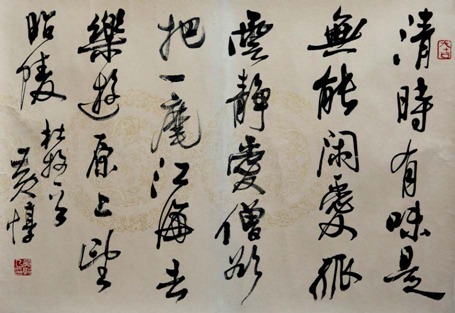 清時有味是
無能闲愛孤
雲靜愛僧欲
把一麾江海去
樂遊原上望
昭陵
杜牧
黄惇